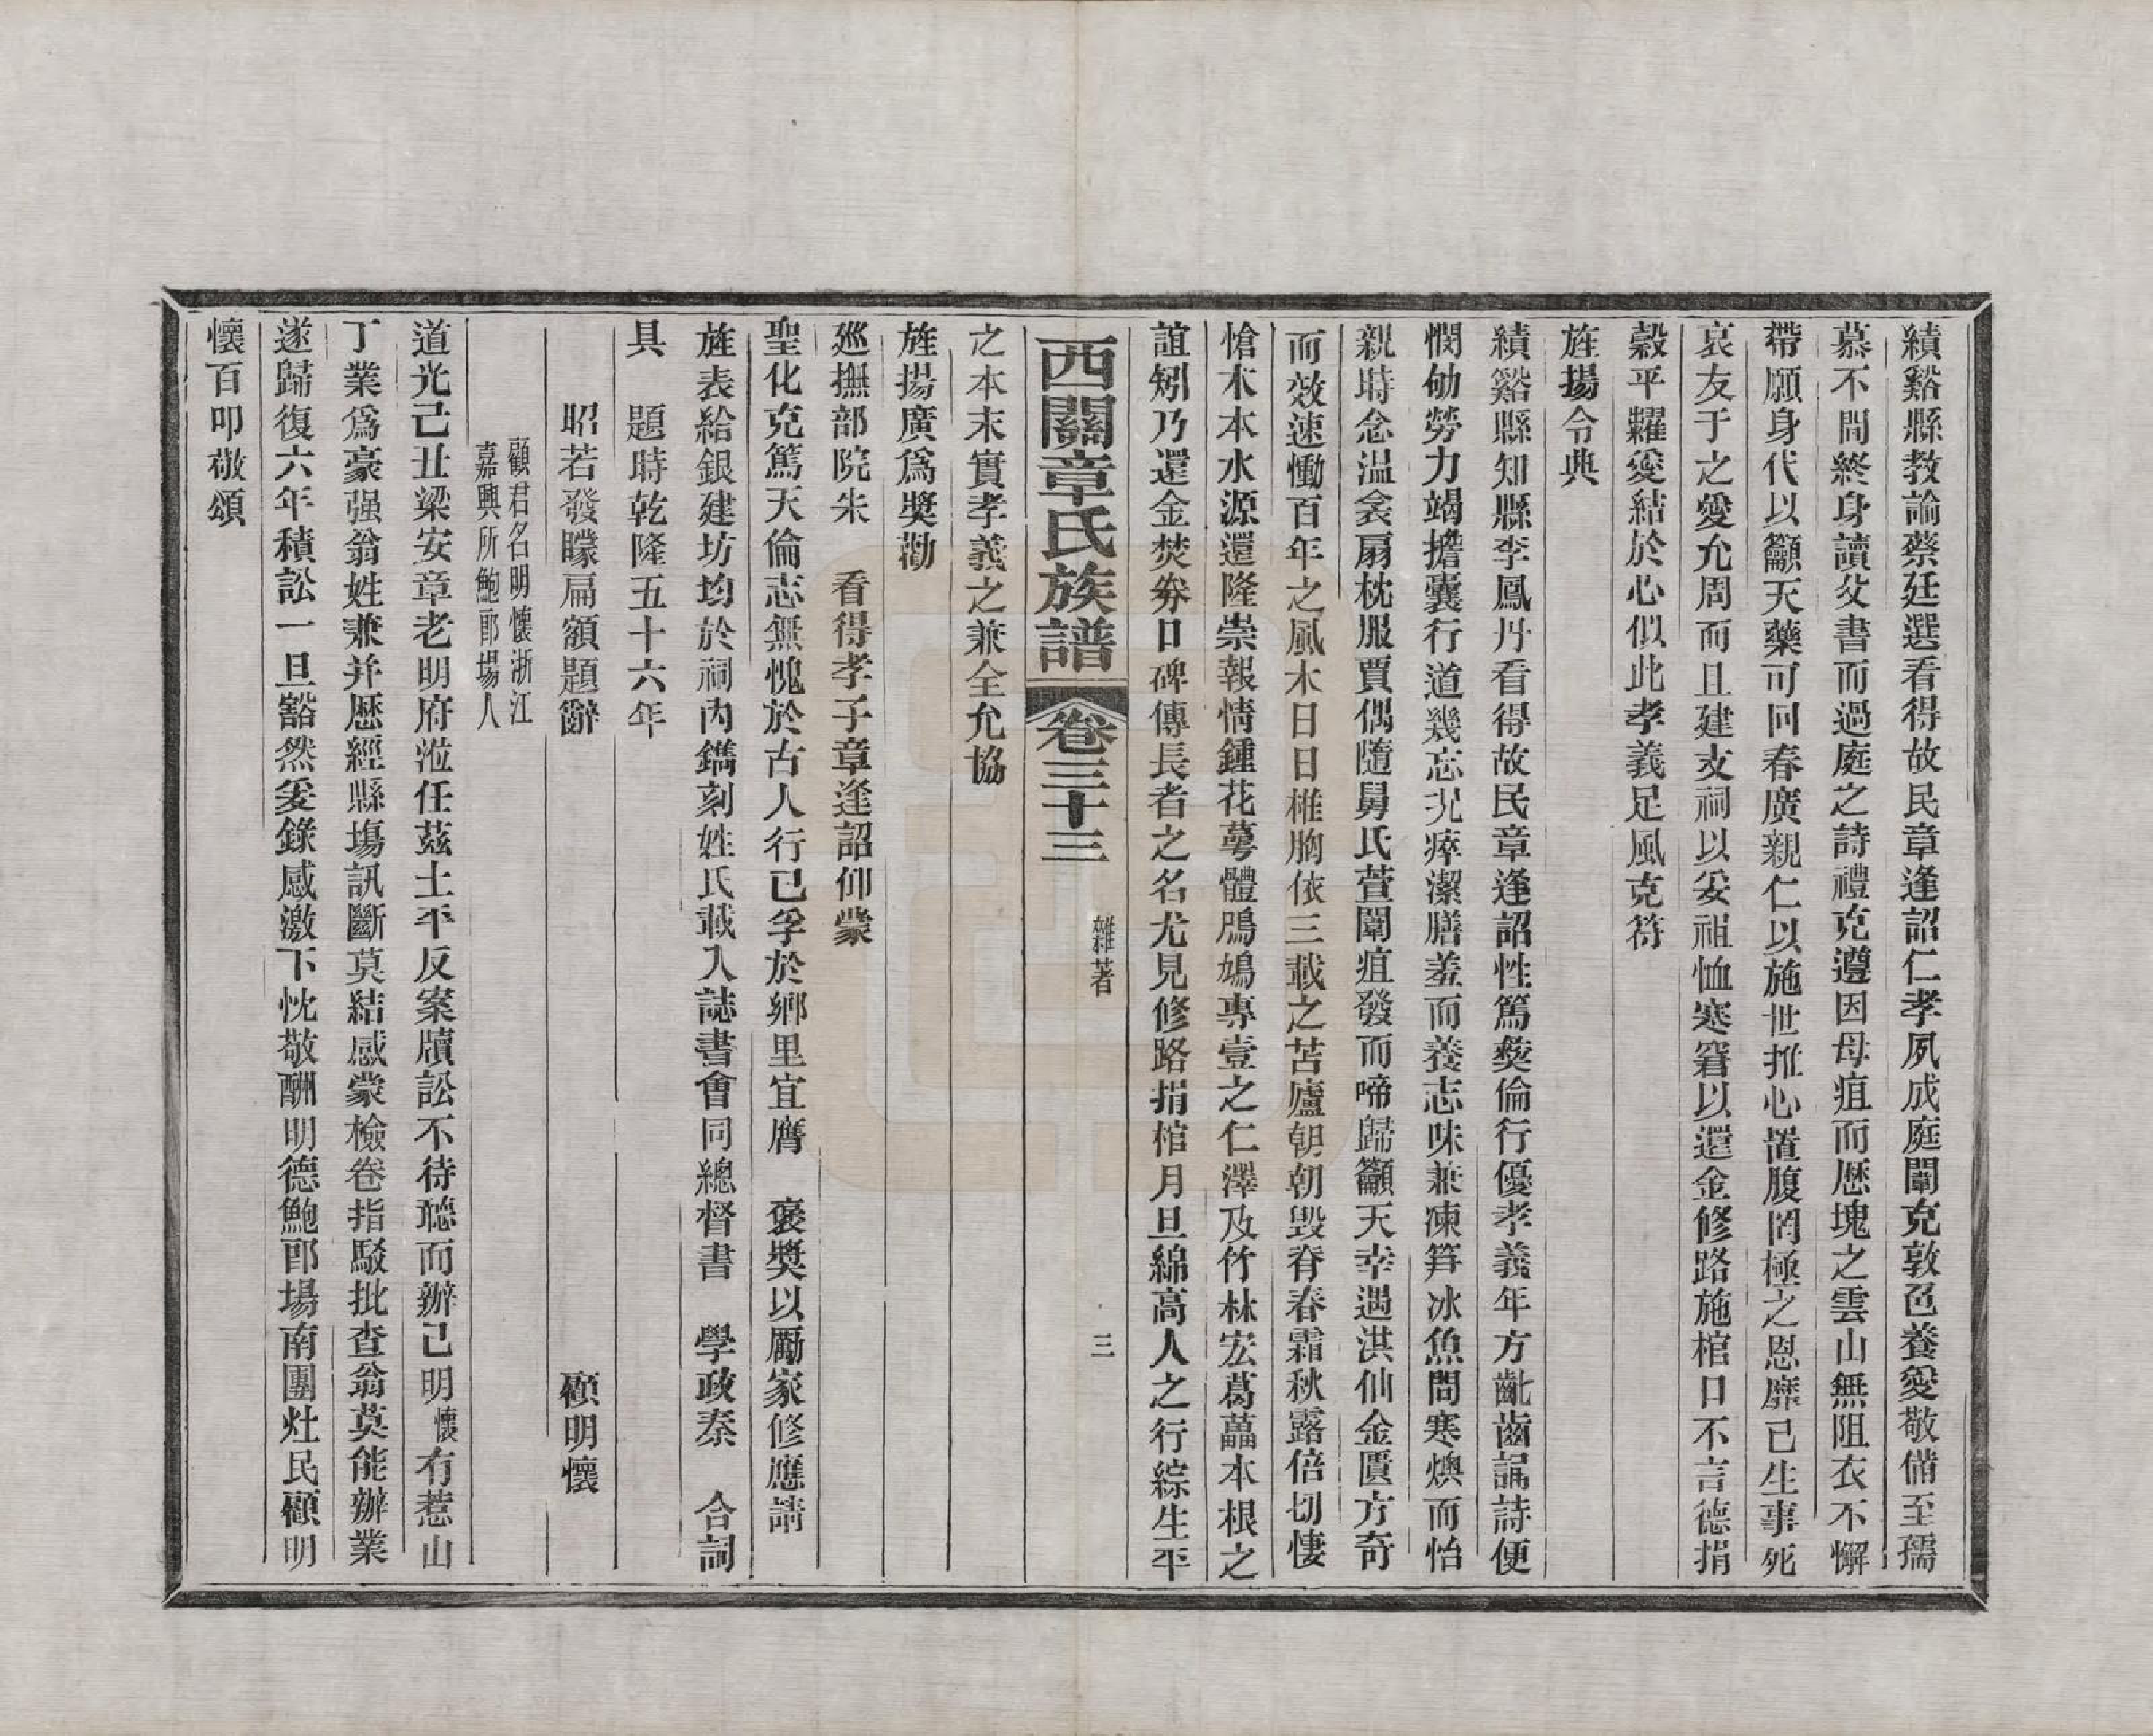 績谿縣教諭蔡廷選看得故民章逢詔仁孝夙成庭闈克敦色養愛敬備至孺
慕不間終身讀父書而過庭之詩禮克遵因母疽而歷塊之雲山無阻衣不懈
帶願身代以籲天藥可回春廣親仁以施世推心置腹罔極之恩靡已生事死
哀友于之愛允周而且建支祠以妥祖恤寒窘以還金修路施棺口不言德捐
穀平糶爰結於心似此孝義足風克符
旌揚令典
績谿縣知縣李鳳丹看得故民章逢詔性篤彝倫行優孝義年方齔齒誦詩便
憫劬勞力竭擔囊行道幾忘況瘁潔膳羞而養志味兼凍筍冰魚問寒燠而怡
親時念温衾扇枕服賈偶隨舅氏萱闈疽發而啼歸籲天幸遇洪仙金匱方奇
而效速慟百年之風木日日椎胸依三載之苫廬朝朝毀脊春霜秋露倍切悽
愴木本水源還隆崇報情鍾花萼體鳲鳩專壹之仁澤及竹林宏葛藟本根之
誼矧乃還金焚券口碑傳長者之名尤見修路捐棺月旦綿高人之行綜生平
西關章氏族譜 卷三十三 雜著 三
之本末實孝義之兼全允協
旌揚廣爲獎勸
廵撫部院朱 看得孝子章逢詔仰蒙
聖化克篤天倫志無愧於古人行已孚於鄉里宜膺 褒獎以勵家修應請
旌表給銀建坊均於祠内鐫刻姓氏載入誌書會同總督書 學政秦 合詞
具 題時乾隆五十六年
昭若發矇扁額題辭 顧明懷
顧君名明懷浙江
嘉興所鮑郎場人
道光己丑梁安章老明府涖任茲土平反案牘訟不待聽而辦己明懷有惹山
丁業爲豪强翁姓兼并歷經縣塲訊斷莫結感蒙檢卷指駁批查翁莫能辦業
遂歸復六年積訟一旦豁然爰錄感激下忱敬酬明德鮑郎場南團灶民顧明
懷百叩敬頌